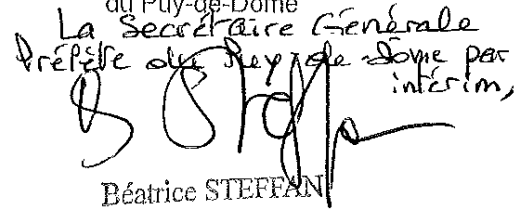 du Puy-de-Dôme
La Secrétaire Générale
Préfète du Puy de Dome par
intérim,
Béatrice STEFFAN